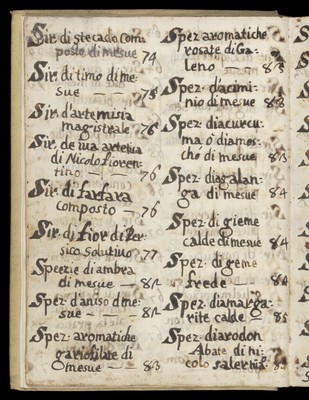 Sir. di stecado com-
posto di mesue 74
Sir. di timo di me-
sue — — 75
Sir. d'artemisia
magistrale 76
Sir. de
di Nicolo fioren-
tino — — 76
Sir. di farfara
composto — 76
Sir. di fior di Per-
sico solutivo 77
Spezie di ambra
di mesue — 82
Spez. d'aniso di me-
sue — — 82
Spez. aromatiche
gariofilate di
mesue — 83
Spez. aromatiche
rosate di Ga-
leno — — 83
Spez. d'acimi-
nio di mesue 83
Spez. diacurcu-
ma o' diamos-
cho di mesue 83
Spez. diagalan-
ga di mesue 84
Spez. di gieme
calde di mesue 84
Spez. di geme
frede — 84
Spez. diamarga-
rite calde — 85
Spez. diarodon
Abate di ni-
colo salernit.